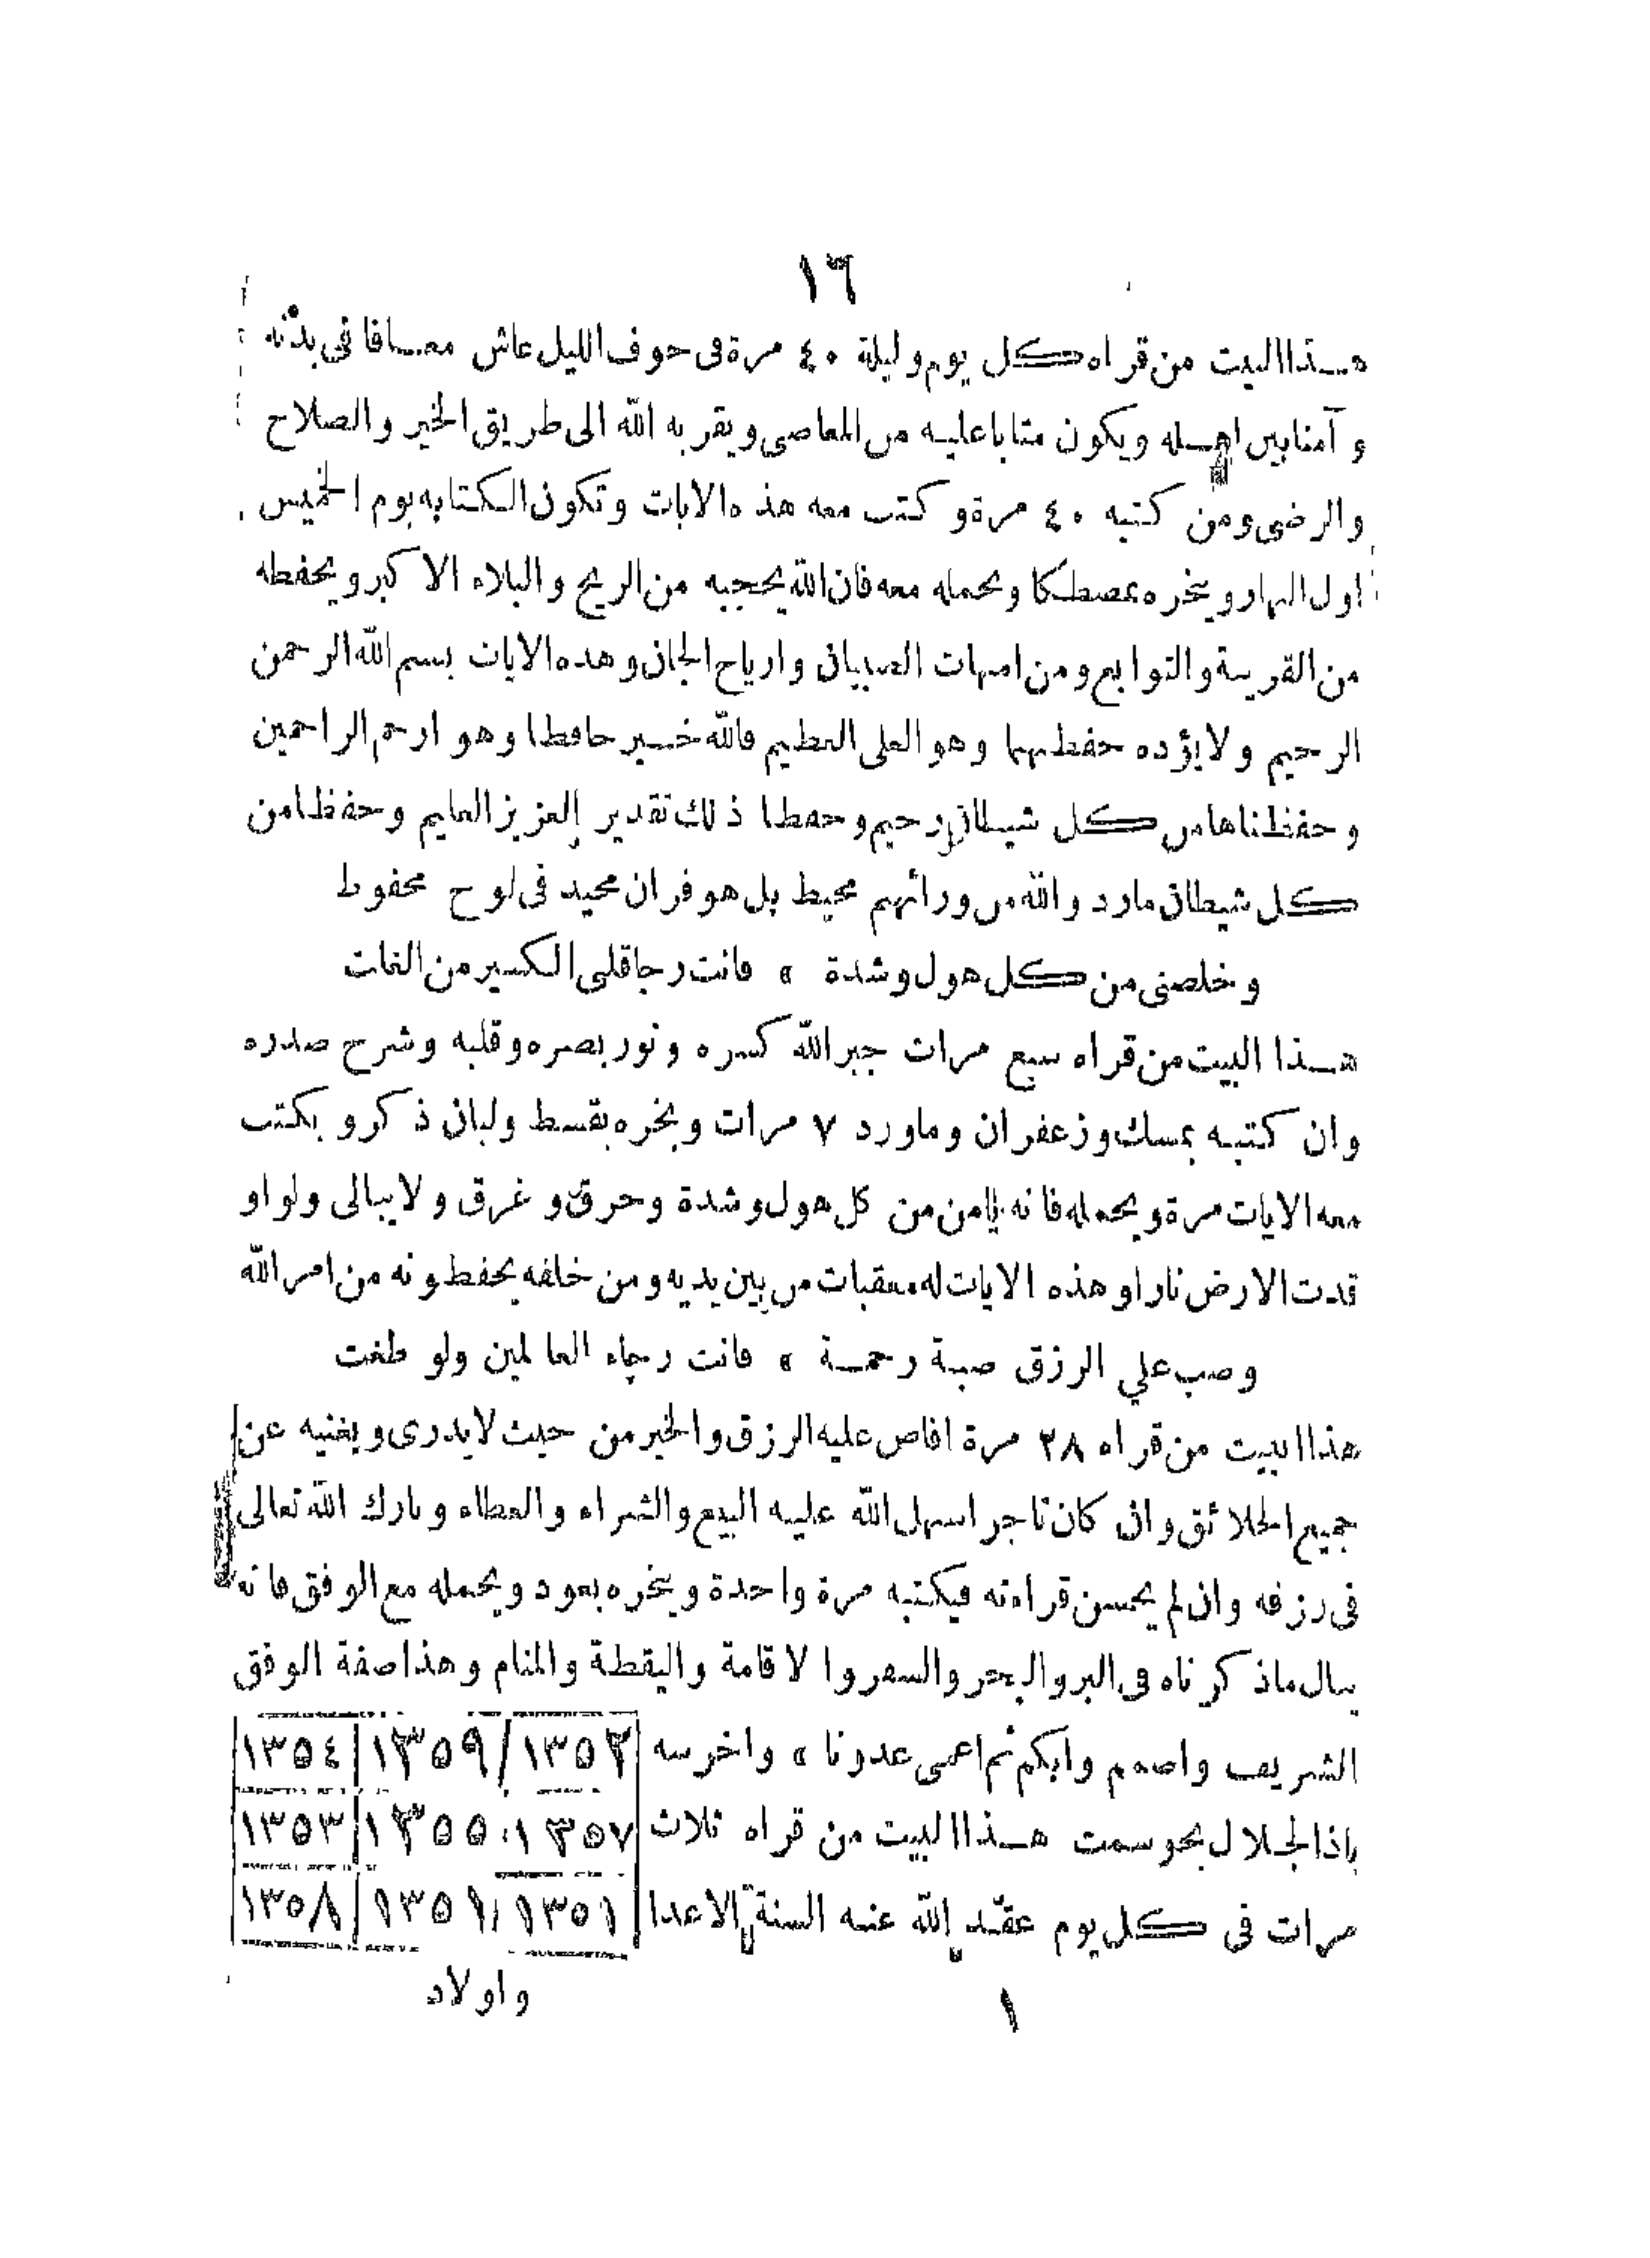 ١٦
هذا البيت من قراه كل يوم وليلة ٤٠ مرة فى جوف الليل عاش معافا فى بدنه
و آمنا بين اهله ويكون متابا عليه من المعاصى ويقربه الله الى طريق الخير والصلاح
والرضى ومن كتبه ٤٠ مرة وكتب معه هذه الايات وتكون الكتابه يوم الخميس
اول النهار ويبخره بمصطكا ويحمله معه فان الله يحجبه من الريح والبلاء الاكبر ويحفظه
من القرينة والتوابع ومن امهات الصبيان وارياح الجان وهذه الايات بسم الله الرحمن
الرحيم ولا يؤده حفظهما وهو العلى العظيم فالله خير حافظا وهو ارحم الراحمين
وحفظناها من كل شيطان رجيم وحفظا ذلك تقدير العزيز العليم وحفظا من
كل شيطان مارد والله من ورائهم محيط بل هو قران مجيد فى لوح محفوظ
وخلصنى من كل هول وشدة * فانت رجا قلبى الكسير من الغات
هذا البيت من قراه سبع مرات جبر الله كسره ونور بصره وقلبه وشرح صدره
وان كتبه بمسك وزعفران وماورد ٧ مرات وبخره بقسط ولبان ذكر ويكتب
معه الايات مرة ويحمله فانه يامن من كل هول وشدة وحرق و غرق ولا يبالى ولو او
قدت الارض نارا وهذه الايات له معقبات من بين يديه ومن خلفه يحفظونه من امر الله
وصب علي الرزق صبة رحمة * فانت رجاء العالمين ولو طغت
هذا البيت من قراه ٢٨ مرة افاض عليه الرزق والخير من حيث لا يدرى ويغنيه عن
جميع الخلائق وان كان تاجر اسهل الله عليه البيع والشراء والعطاء وبارك الله تعالى
فى رزقه وان لم يحسن قراءته فيكتبه مرة واحدة ويبخره بعود ويحمله مع الوفق فانه
ينال ماذكرناه فى البر والبحر والسفر والاقامة واليقظة والمنام وهذا صفة الوفق
الشريف واصمم وابكم ثم اعمى عدونا * واخرسه ١٣٥٢ ١٣٥٩ ١٣٥٤
ياذا الجلال بحوسمت هذا البيت من قراه ثلاث ١٣٥٧ ١٣٥٥ ١٣٥٣
مرات فى كل يوم عقد الله عنه السنة الاعدا ١٣٥١ ١٣٥٨
واولاد
١